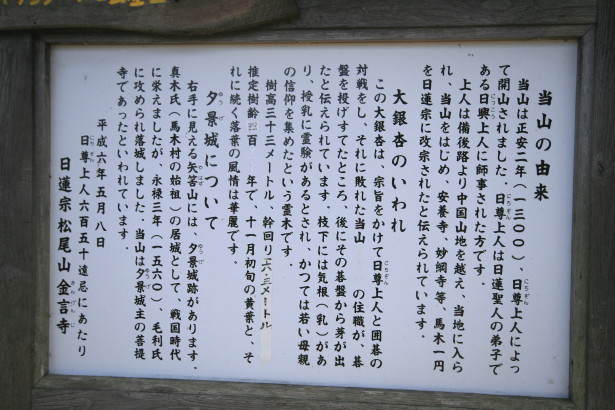 当山の由来
当山は正安二年（一三００）、日尊上人によっ
て開山されました。日尊上人は日蓮聖人の弟子で
ある日興上人に師事された方です。
上人は備後路より中国山地を越え、当地に入ら
れ、当山をはじめ、安養寺、妙綱寺等、馬木一円
を日蓮宗に改宗されたと伝えられています。
大銀杏のいわれ
この大銀杏は、宗旨をかけて日尊上人と囲碁の
対戦をし、それに敗れた当山　の住職が、碁
盤を投げすてたところ、後にその碁盤から芽が出
たと伝えられています。枝下には気根（乳）があ
り、授乳に霊験があるとされ、かつては若い母親
の信仰を集めたという霊木です。
樹高三十三メートル、幹回り六・三メートル
推定樹齢　百　年で、十一月初旬の黄葉と、そ
れに続く落葉の風情は華麗です。
夕景城について
右手に見える矢筈山には、夕景城跡があります。
真木氏（馬木村の始祖）の居城として、戦国時代
に栄えましたが、永禄三年（一五六０）、毛利氏
に攻められ落城しました。当山は夕景城主の菩提
寺であったといわれています。
平成六年五月八日
日尊上人六百五十遠忌にあたり
日蓮宗松尾山 金言寺